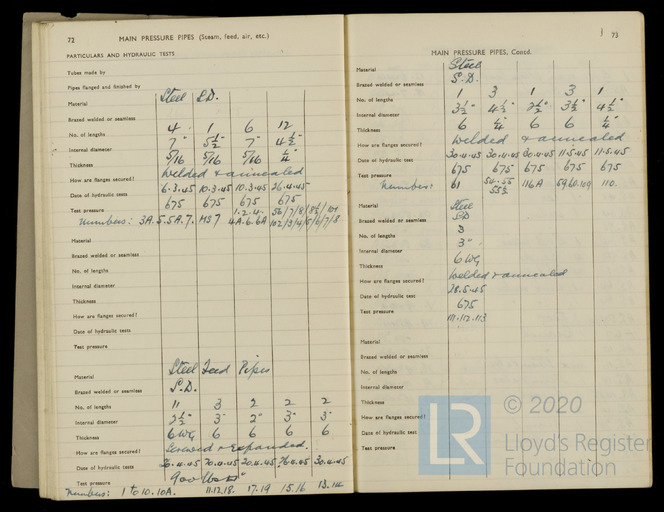 72 MAIN PRESSURE PIPES (Steam, feed, air, etc.)
PARTICULARS AND HYDRAULIC TESTS
Tubes made by
Pipes flanged and finished by
Material Steel S.D.
Brazed welded or seamless
No. of lengths 4 1 6 12
Internal diameter 7" 5½" 7" 4½"
Thickness 5/16 5/16 5/16 ¼
How are flanges secured? Welded & annealed
Date of hydraulic tests 6.3.45 10.3.45 10.3.45 26.4.45
Test pressure 675 675 675 675
Numbers: 3A.5.5A.7. MS7 1.2.4. 4A.6.6A
Material
Brazed welded or seamless
No. of lengths
Internal diameter
Thickness
How are flanges secured?
Date of hydraulic tests
Test pressure
Material Steel Feed Pipes
Brazed welded or seamless S.D.
No. of lengths 11 3 2 2 2
Internal diameter 2½" 3" 2" 3" 3"
Thickness 6WG 6 6 6 6
How are flanges secured? Screwed & expanded.
Date of hydraulic tests 20.4.45 20.4.45 20.4.45 26.4.45 30.4.45
Test pressure 900 lbs
Numbers: 1 to 10.10A. 11.12.18. 17.19 15.16 13.
73
MAIN PRESSURE PIPES, Contd.
Material Steel
Brazed welded or seamless S.D.
No. of lengths 1 3 1 3 1
Internal diameter 3½" 4½" 2½" 3½" 4½"
Thickness 6 ¼ 6 6 ¼
How are flanges secured? Welded & annealed
Date of hydraulic test 30.4.45 30.4.45 30.4.45 11.5.45 11.5.45
Test pressure 675 675 675 675 675
Numbers: 61 54.55 55½ 116A 59.60.109 110.
Material Steel
Brazed welded or seamless S.D.
No. of lengths 3
Internal diameter 3"
Thickness 6WG
How are flanges secured? Welded & annealed
Date of hydraulic test 28.5.45
Test pressure 675
111.112.113
Material
Brazed welded or seamless
No. of lengths
Internal diameter
Thickness
How are flanges secured?
Date of hydraulic test
Test pressure
LR © 2020
Lloyd's Register
Foundation